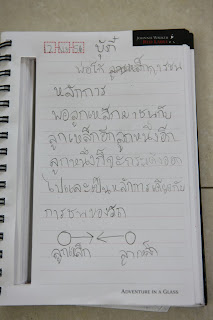 JOHNNY WALKER
บุ๊ตี้
พ่อให้ ลูกเหล็กมาชน
หลักการ
พอลูกเหล็กมาชนกับ
ลูกเหล็กอีกลูกหนึ่งอีก
ลูกหนึ่งก็จะกระเด็นออก
ไปและเป็นหลักการเดียวกับ
การชนของรถ
ลูกเหล็ก ลูกเหล็ก
ADVENTURE IN A GLASS